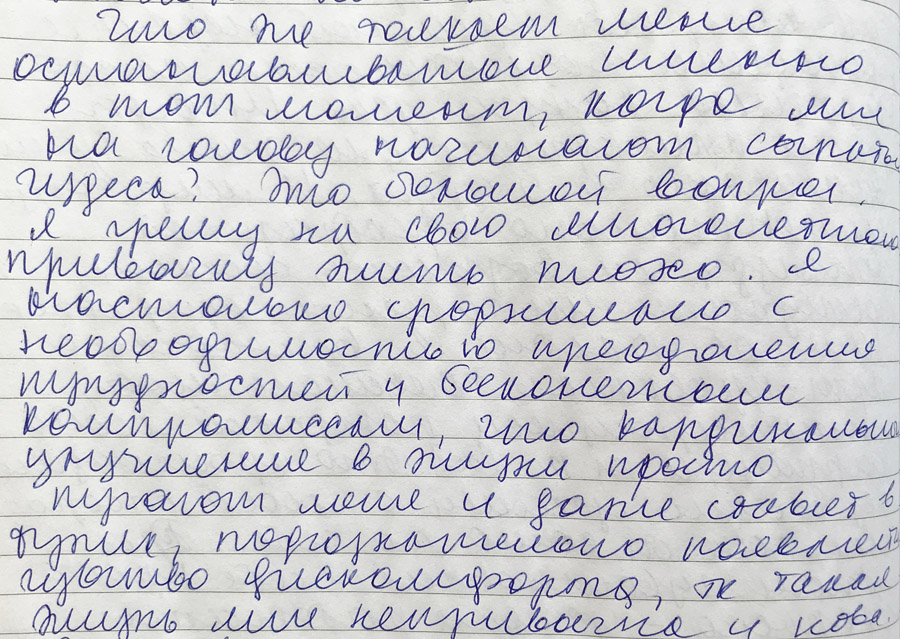 Что же толкает меня
останавливаться именно
в тот момент, когда мне
на голову начинают сыпаться
чудеса? Это большой вопрос.
Я грешу на свою многолетнюю
привычку жить плохо. Я
настолько сроднилась с
необходимостью преодоления
трудностей и бесконечным
компромиссам, что кардинальные
улучшения в жизни просто
пугают меня и даже ставят в
тупик, подсознательно появляется
чувство дискомфорта, тк такая
жизнь мне непривычна и нова.